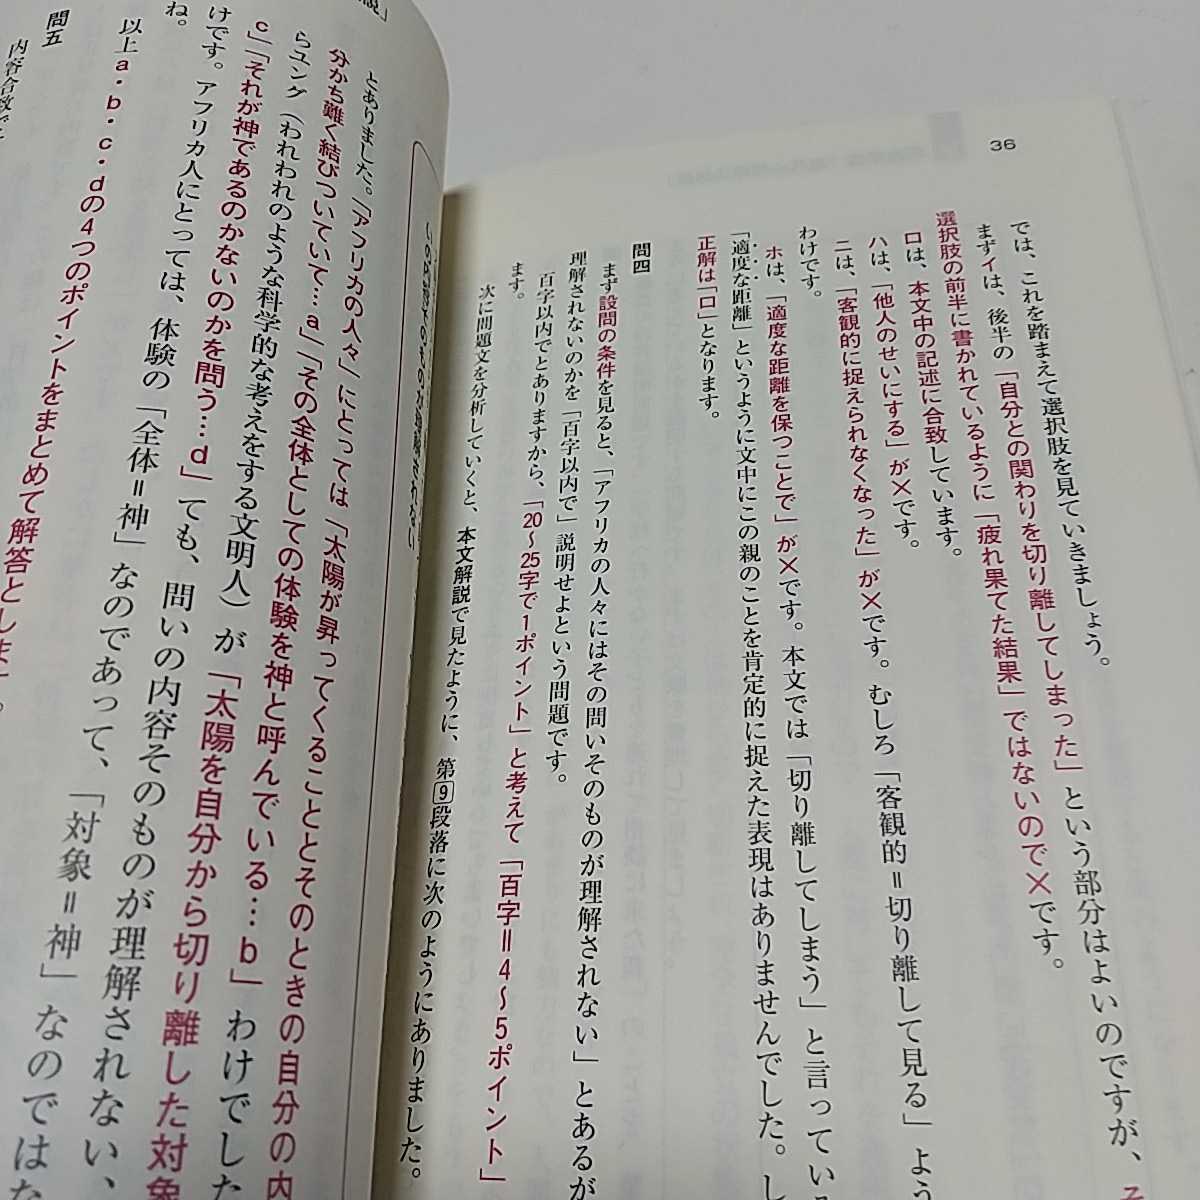 36
では、これを踏まえて選択肢を見ていきましょう。
まずイは、後半の「自分との関わりを切り離してしまった」という部分はよいのですが、
選択肢の前半に書かれているように「疲れ果てた結果」ではないので×です。
ロは、本文中の記述に合致しています。
ハは、「他人のせいにする」が×です。
ニは、「客観的に捉えられなくなった」が×です。むしろ「客観的＝切り離して見る」よう
わけです。
ホは、「適度な距離を保つことで」が×です。本文では「切り離してしまう」と言ってい
「適度な距離」というように文中にこの親のことを肯定的に捉えた表現はありませんでした。し
正解は「ロ」となります。
問四
まず設問の条件を見ると、「アフリカの人々にはその問いそのものが理解されない」とあるが
理解されないのかを「百字以内で」説明せよという問題です。
百字以内でとありますから、「20〜25字で1ポイント」と考えて「百字＝4〜5ポイント」
ます。
次に問題文を分析していくと、本文解説で見たように、第9段落に次のようにありました。
とありました。「アフリカの人々」にとっては「太陽が昇ってくることとそのときの自分の内
分かち難く結びついていて…a」「その全体としての体験を神と呼んでいる…b」わけでした
らユング（われわれのような科学的な考えをする文明人）が「太陽を自分から切り離した対象
c」「それが神であるのかないのかを問う…d」ても、問いの内容そのものが理解されない、
けです。アフリカ人にとっては、体験の「全体＝神」なのであって、「対象＝神」なのではな
ね。
以上a・b・c・dの4つのポイントをまとめて解答としま
問五
内容合致で